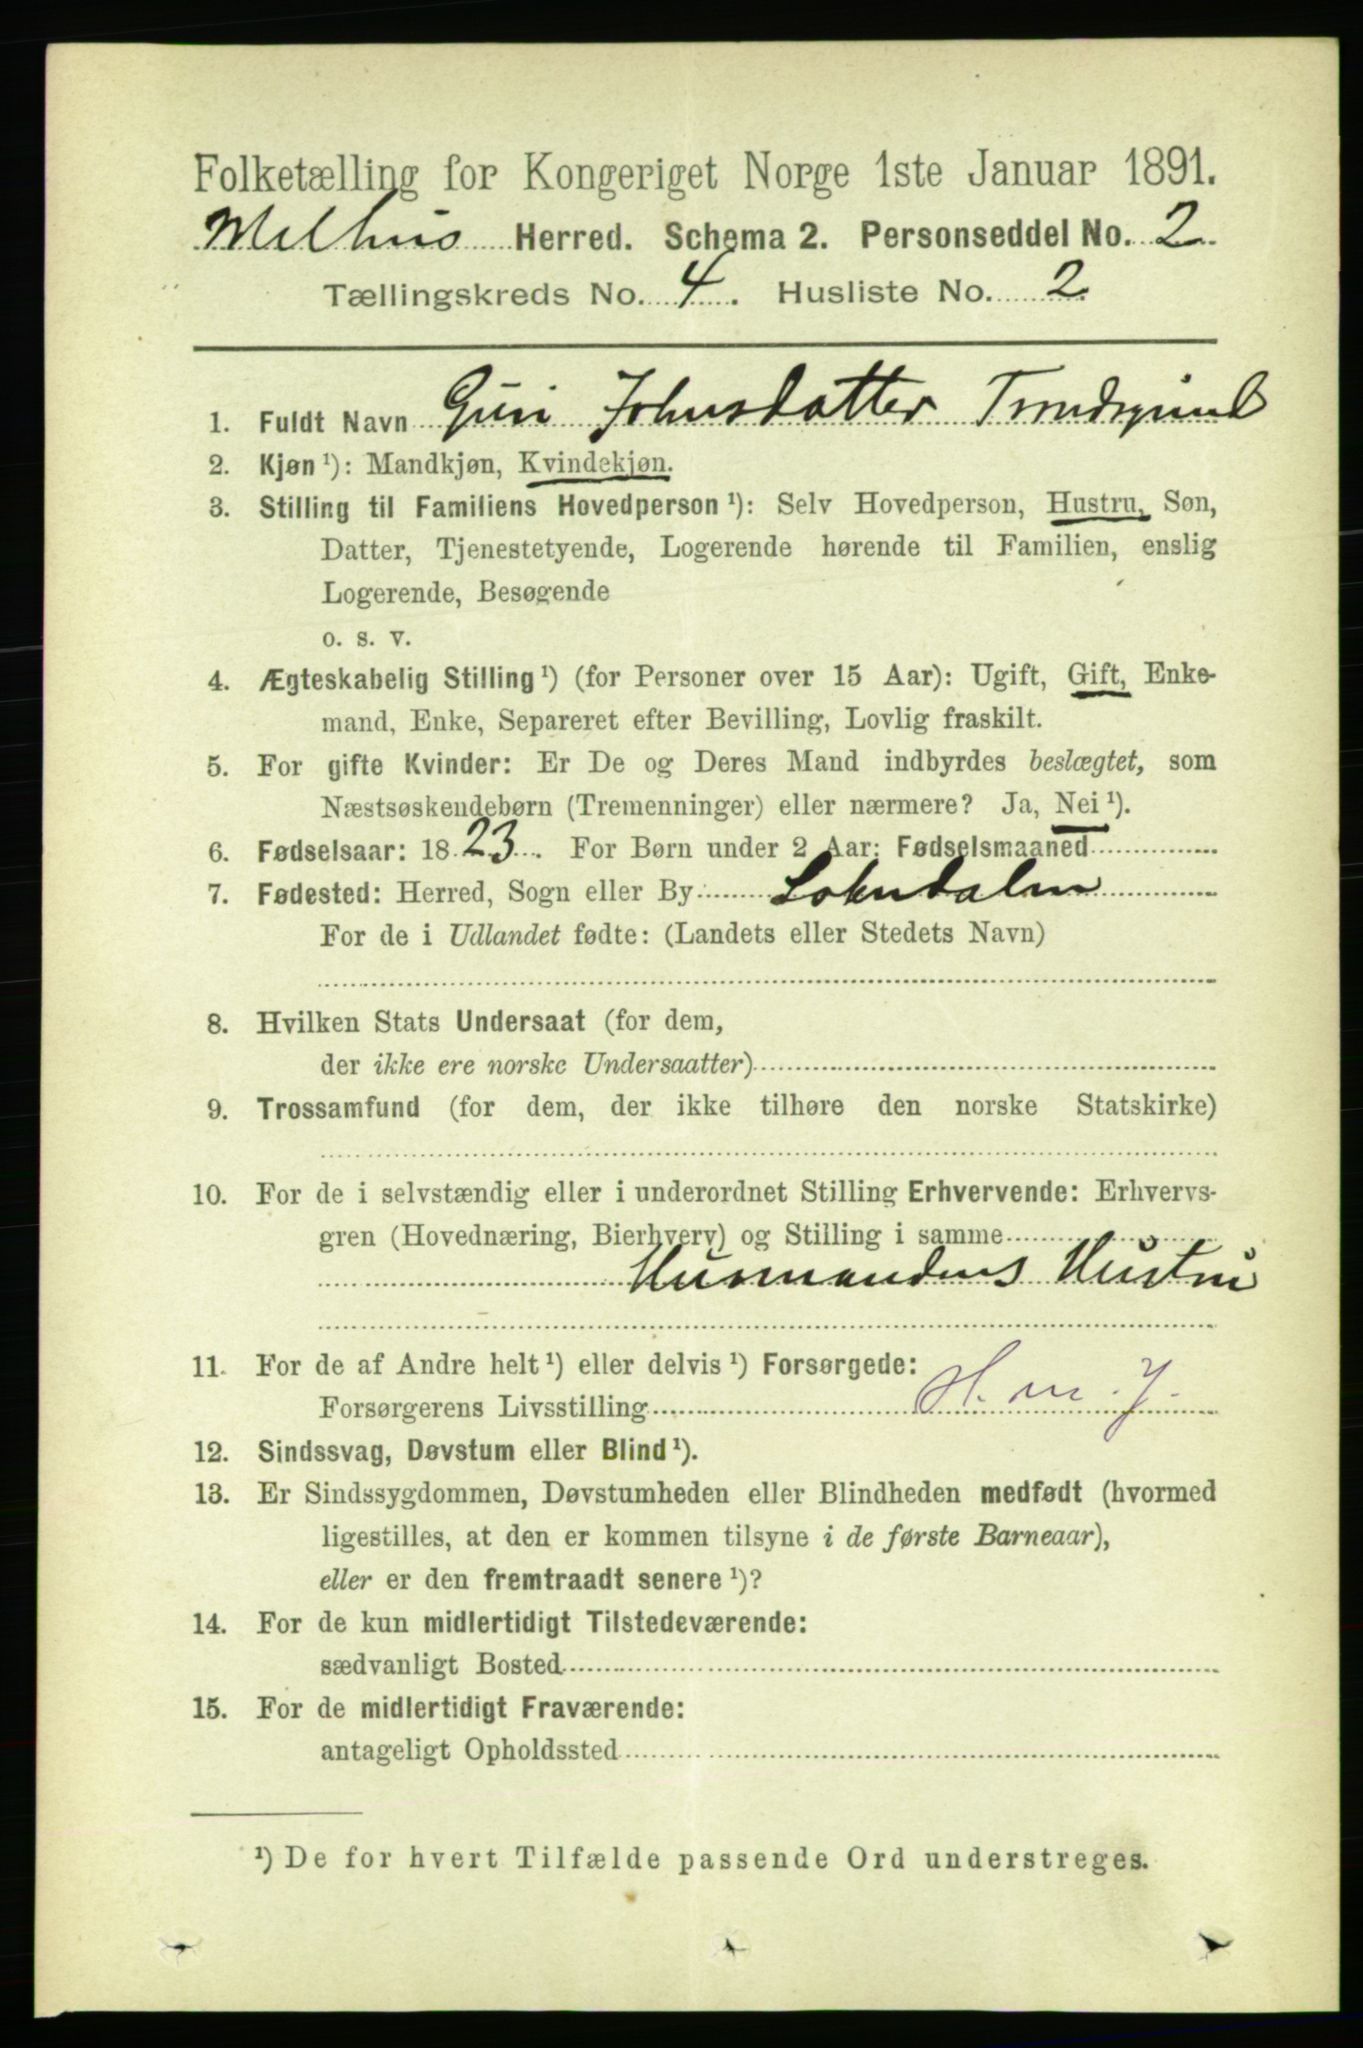 Folketælling for Kongeriget Norge 1ste Januar 1891.
Melhus Herred. Schema 2. Personseddel No. 2
Tællingskreds No. 4. Husliste No. 2
1. Fuldt Navn Guri Johnsdatter
2. Kjøn ¹): Mandkjøn, Kvindekjøn.
3. Stilling til Familiens Hovedperson ¹): Selv Hovedperson, Hustru, Søn,
Datter, Tjenestetyende, Logerende hørende til Familien, enslig
Logerende, Besøgende
o. s. v.
4. Ægteskabelig Stilling ¹) (for Personer over 15 Aar): Ugift, Gift, Enke-
mand, Enke, Separeret efter Bevilling, Lovlig fraskilt.
5. For gifte Kvinder: Er De og Deres Mand indbyrdes beslægtet, som
Næstsøskendebørn (Tremenninger) eller nærmere? Ja, Nei ¹).
6. Fødselsaar: 1823. For Børn under 2 Aar: Fødselsmaaned
7. Fødested: Herred, Sogn eller By Sokndalen
For de i Udlandet fødte: (Landets eller Stedets Navn)
8. Hvilken Stats Undersaat (for dem,
der ikke ere norske Undersaatter)
9. Trossamfund (for dem, der ikke tilhøre den norske Statskirke)
10. For de i selvstændig eller i underordnet Stilling Erhvervende: Erhvervs-
gren (Hovednæring, Bierhverv) og Stilling i samme
Husmandens Hustru
11. For de af Andre helt ¹) eller delvis ¹) Forsørgede:
Forsørgerens Livsstilling H. m. J.
12. Sindssvag, Døvstum eller Blind ¹).
13. Er Sindssygdommen, Døvstumheden eller Blindheden medfødt (hvormed
ligestilles, at den er kommen tilsyne i de første Barneaar),
eller er den fremtraadt senere ¹)?
14. For de kun midlertidigt Tilstedeværende:
sædvanligt Bosted
15. For de midlertidigt Fraværende:
antageligt Opholdssted
¹) De for hvert Tilfælde passende Ord understreges.